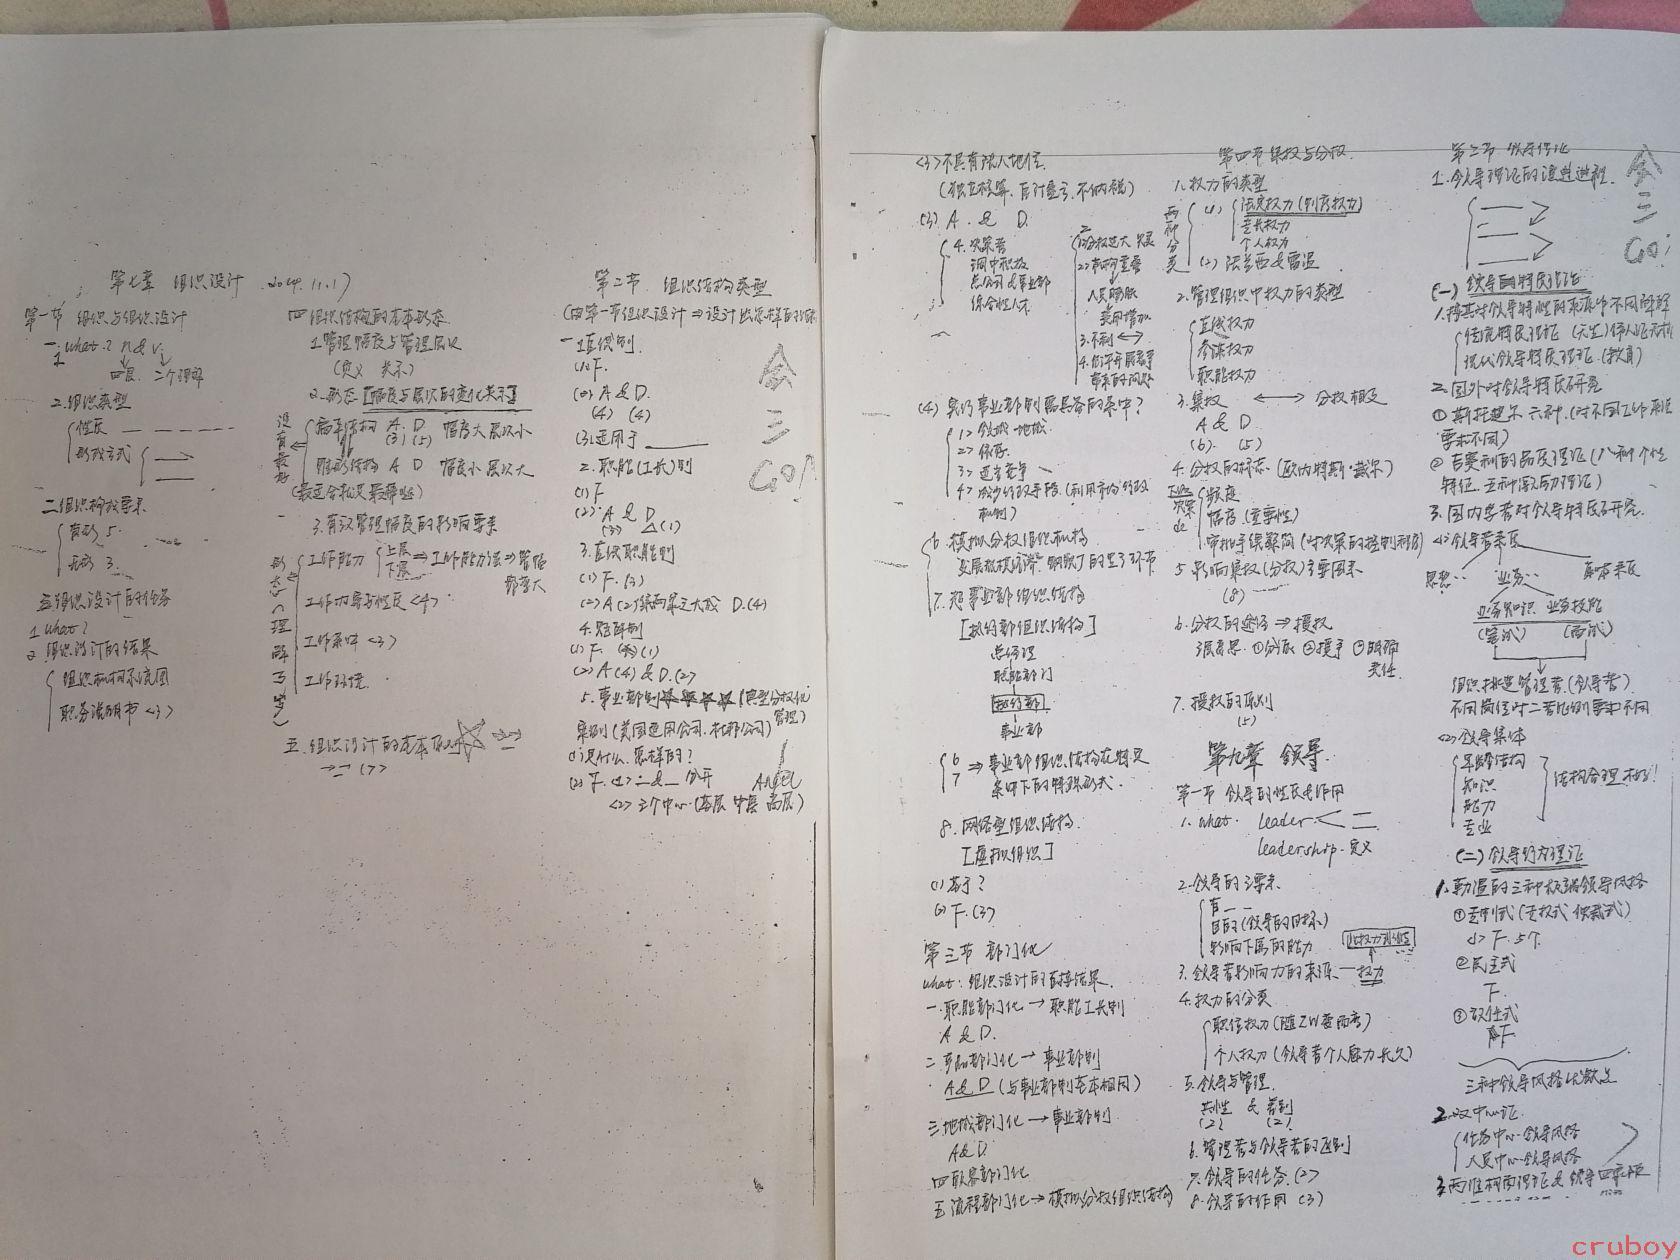 第七章 组织设计 2024.11.17
第一节 组织与组织设计
一、1. what? n & v.
四层. 二个理解
2. 组织类型
性质
形成方式
二 组织构成要素
有形 5.
无形 3.
三 组织设计的任务
1 what?
2 组织设计的结果
组织机构系统图
职务说明书 <3>
四 组织结构的基本形态
1. 管理幅度与管理层次
(定义 关系)
2. 形态【幅度与层次的变化关系】
扁平结构 A. D 幅度大 层次小
(3) (5)
锥形结构 A D 幅度小 层次大
没有最好
(最适合就是最棒哒)
3. 有效管理幅度的影响要素
工作能力 上层 下层 ⇒ 工作能力强 ⇒ 管幅
工作内容与性质 <4>
工作条件 <3>
工作环境
五. 组织设计的基本原则
<7>
第二节 组织结构类型
(由第一节组织设计 ⇒ 设计出怎样的
一 1 直线制.
(1) F.
(2) A & D.
(4) (4)
(3) 适用于
2. 职能(工长)制
(1) F
(2) A & D
(3) (1)
3. 直线职能制
(1) F. (3)
(2) A (2) 综两家之大成 D. (4)
4. 矩阵制
(1) F. (1)
(2) A (4) & D. (2)
5. 事业部制 (典型分权化管理)
案例 (美国通用公司. 杜邦公司)
(1) 是什么. 怎样的?
(2) F. <1> & 分开
<2> 三个中心 (基层 中层 高层)
Angel
会
三
GO!
<3> 不具有法人地位.
(独立核算. 自计盈亏. 不纳税)
(3). A. & D.
4. 决策者
调中积极
总公司 & 事业部
综合性人才
1> 分权过大
2> 机构重叠
人员膨胀
费用增加
3. 不利
(4) 实行事业部制需具备的条件?
1> 领域 地域
2> 依存.
3> 适当竞争
4> 减少行政手段 (利用市场
机制)
6. 模拟分权组织机构
7. 超事业部组织结构
[执行部组织结构]
总经理
职能部门
执行部
事业部
6
7 ⇒ 事业部组织结构在特定
条件下的特殊形式.
8. 网络型组织结构.
[虚拟组织]
(1) 基于?
(2) F. (3)
第三节 部门化
what: 组织设计的直接结果.
一. 职能部门化 → 职能工长制
A & D.
二. 产品部门化 → 事业部制
A & D (与事业部制基本相同)
三. 地域部门化 → 事业部制.
A & D.
四 顾客部门化
五 流程部门化 → 模拟分权组织结构
第四节 集权与分权.
1. 权力的类型
两种分类
(1) 法定权力 (制度权力)
专长权力
个人权力
(2) 法兰西 & 雷温
2. 管理组织中权力的类型
直线权力
参谋权力
职能权力
3. 集权 ⟷ 分权 相反
A & D
(6). (5)
4. 分权的标志 (欧内斯特·戴尔)
决策
频度
幅度. (重要性)
审批手续繁简 (对决策的控制程度)
5. 影响集权 (分权) 主要因素
(8)
6. 分权的途径 ⇒ 授权
①分派 ②授予 ③明确
责任
7. 授权的原则
(5)
第九章 领导.
第一节 领导的性质与作用
1. what. leader
leadership. 定义
2. 领导的三要素.
有
目的 (领导的目标)
影响下属的能力
3. 领导者影响力的来源 — 权力
4. 权力的分类
职位权力
个人权力 (领导者个人魅力 长久)
5. 领导与管理.
共性 & 差别
(2) (2)
6. 管理者与领导者的区别
7. 领导的任务. <2>
8. 领导的作用 <3>
第二节 领导理论
1. 领导理论的演进进程.
会
三
GO!
(一) 领导的特质理论
传统特质理论 (天生) 伟人论
现代领导特质理论. (教育)
2. 国外对领导特质研究
① 斯托格迪尔 六种. (对不同工作
要求不同)
② 吉赛利的品质理论 (八种个性
特征. 五种激励理论)
3. 国内学者对领导特质研究.
<1> 领导者素质
思想.. 业务.. 身体素质
业务知识 业务技能
(笔试) (面试)
组织挑选管理者. (领导者)
不同岗位对二者比例要求不同
<2> 领导集体
年龄结构
知识
能力
专业
结构合理
(二) 领导行为理论
1. 勒温的三种极端领导风格
① 专制式 (专权式 独裁式)
<1> F. 5个.
② 民主式
F.
③ 放任式
F
三种领导风格优缺点
2. 双中心论.
任务中心领导风格
人员中心领导风格
3. 两维构面理论 & 领导四象限
cruboy